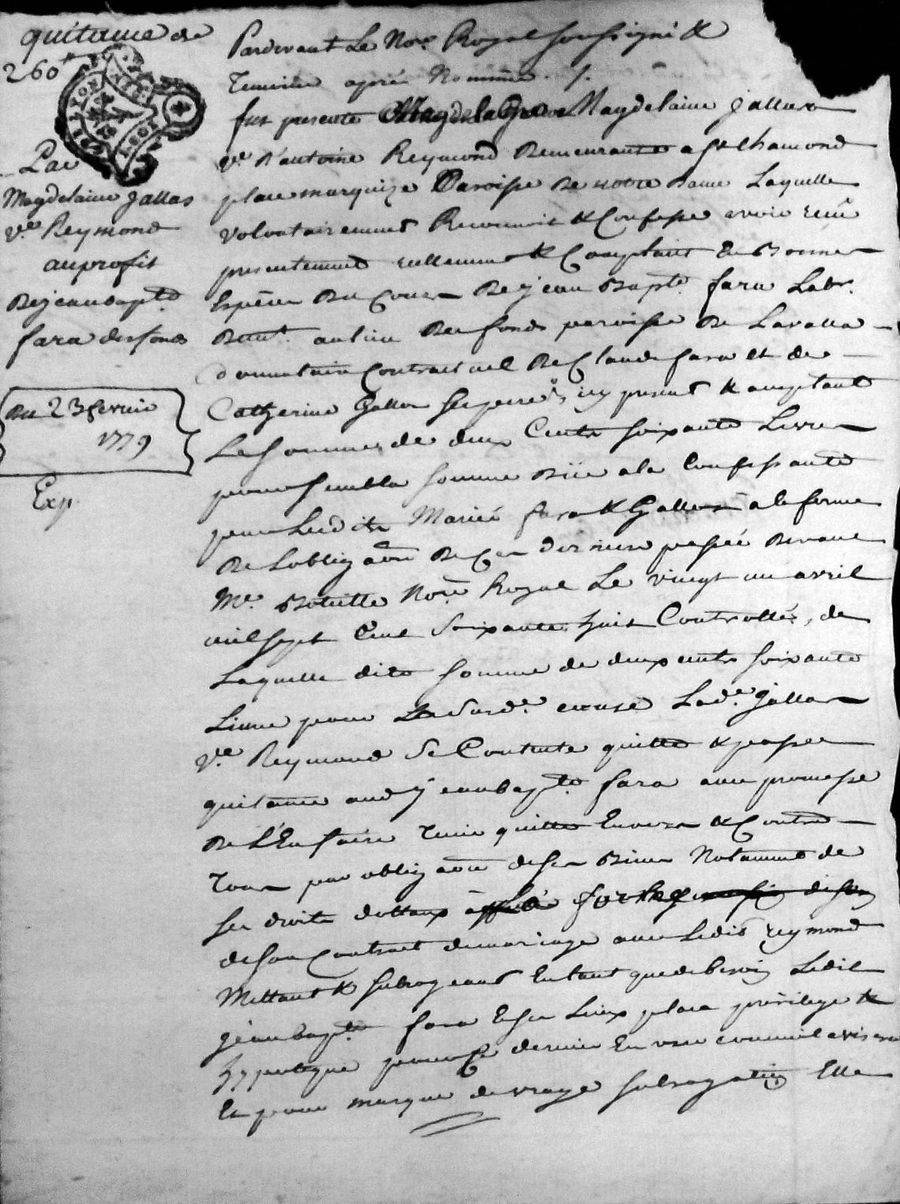 quitance de
260ᵗᵗ
Par
Magdelaine Jallas
vᵉ Reymond
au profit
de jean bapᵗᵉ
fara des fonds
Du 23 fevrier
1779
Exp.
Pardevant Le Noʳᵉ Royal soussigné &
temoins après Nommés
fut presente Magdelaine Jallas
vᵉ d'antoine Reymond demeurante a St chamond
place marquize Paroisse de notre dame Laquelle
volontairement Reconnoit & Confesse avoir reçu
presentement reellement & Comptant en Bonnes
Espèces du Cours De jean Baptᵉ fara Labʳ
demᵗ au lieu des fonds paroisse de Lavalla
donnataire Contractuel de Claude fara et de
Catherine Gallon ses pere & mere icy present & acceptant
La somme de deux Cents soixante Livres
pour semblable somme düe a la Confessante
par Lesdits Mariés fara & Gallon a la forme
de Lobligaōn de Ces derniers passée devant
Mᵉ Noʳᵉ Royal Le vingt un avril
mil sept Cent Soixante huit Controllée, de
Laquelle dite somme de deux cents soixante
Livres pour La susdᵉ cause Ladᵉ Jallas
vᵉ Reymond Se Contente quitte & passe
quitance audᵗ jean baptᵉ fara avec promesse
de L'En faire tenir quitte Envers & Contre
Tous par obligaōn de ses Biens Notamment de
ses droits dottaux
de son Contract de mariage avec Ledit Reymond
Mettant & subrogeant En tant que de besoin Ledit
jean baptᵉ fara En ses Lieux place privilege &
hypoteque pour Ce dernier En user comme il avisera
Et pour marque de vraye subrogation Elle